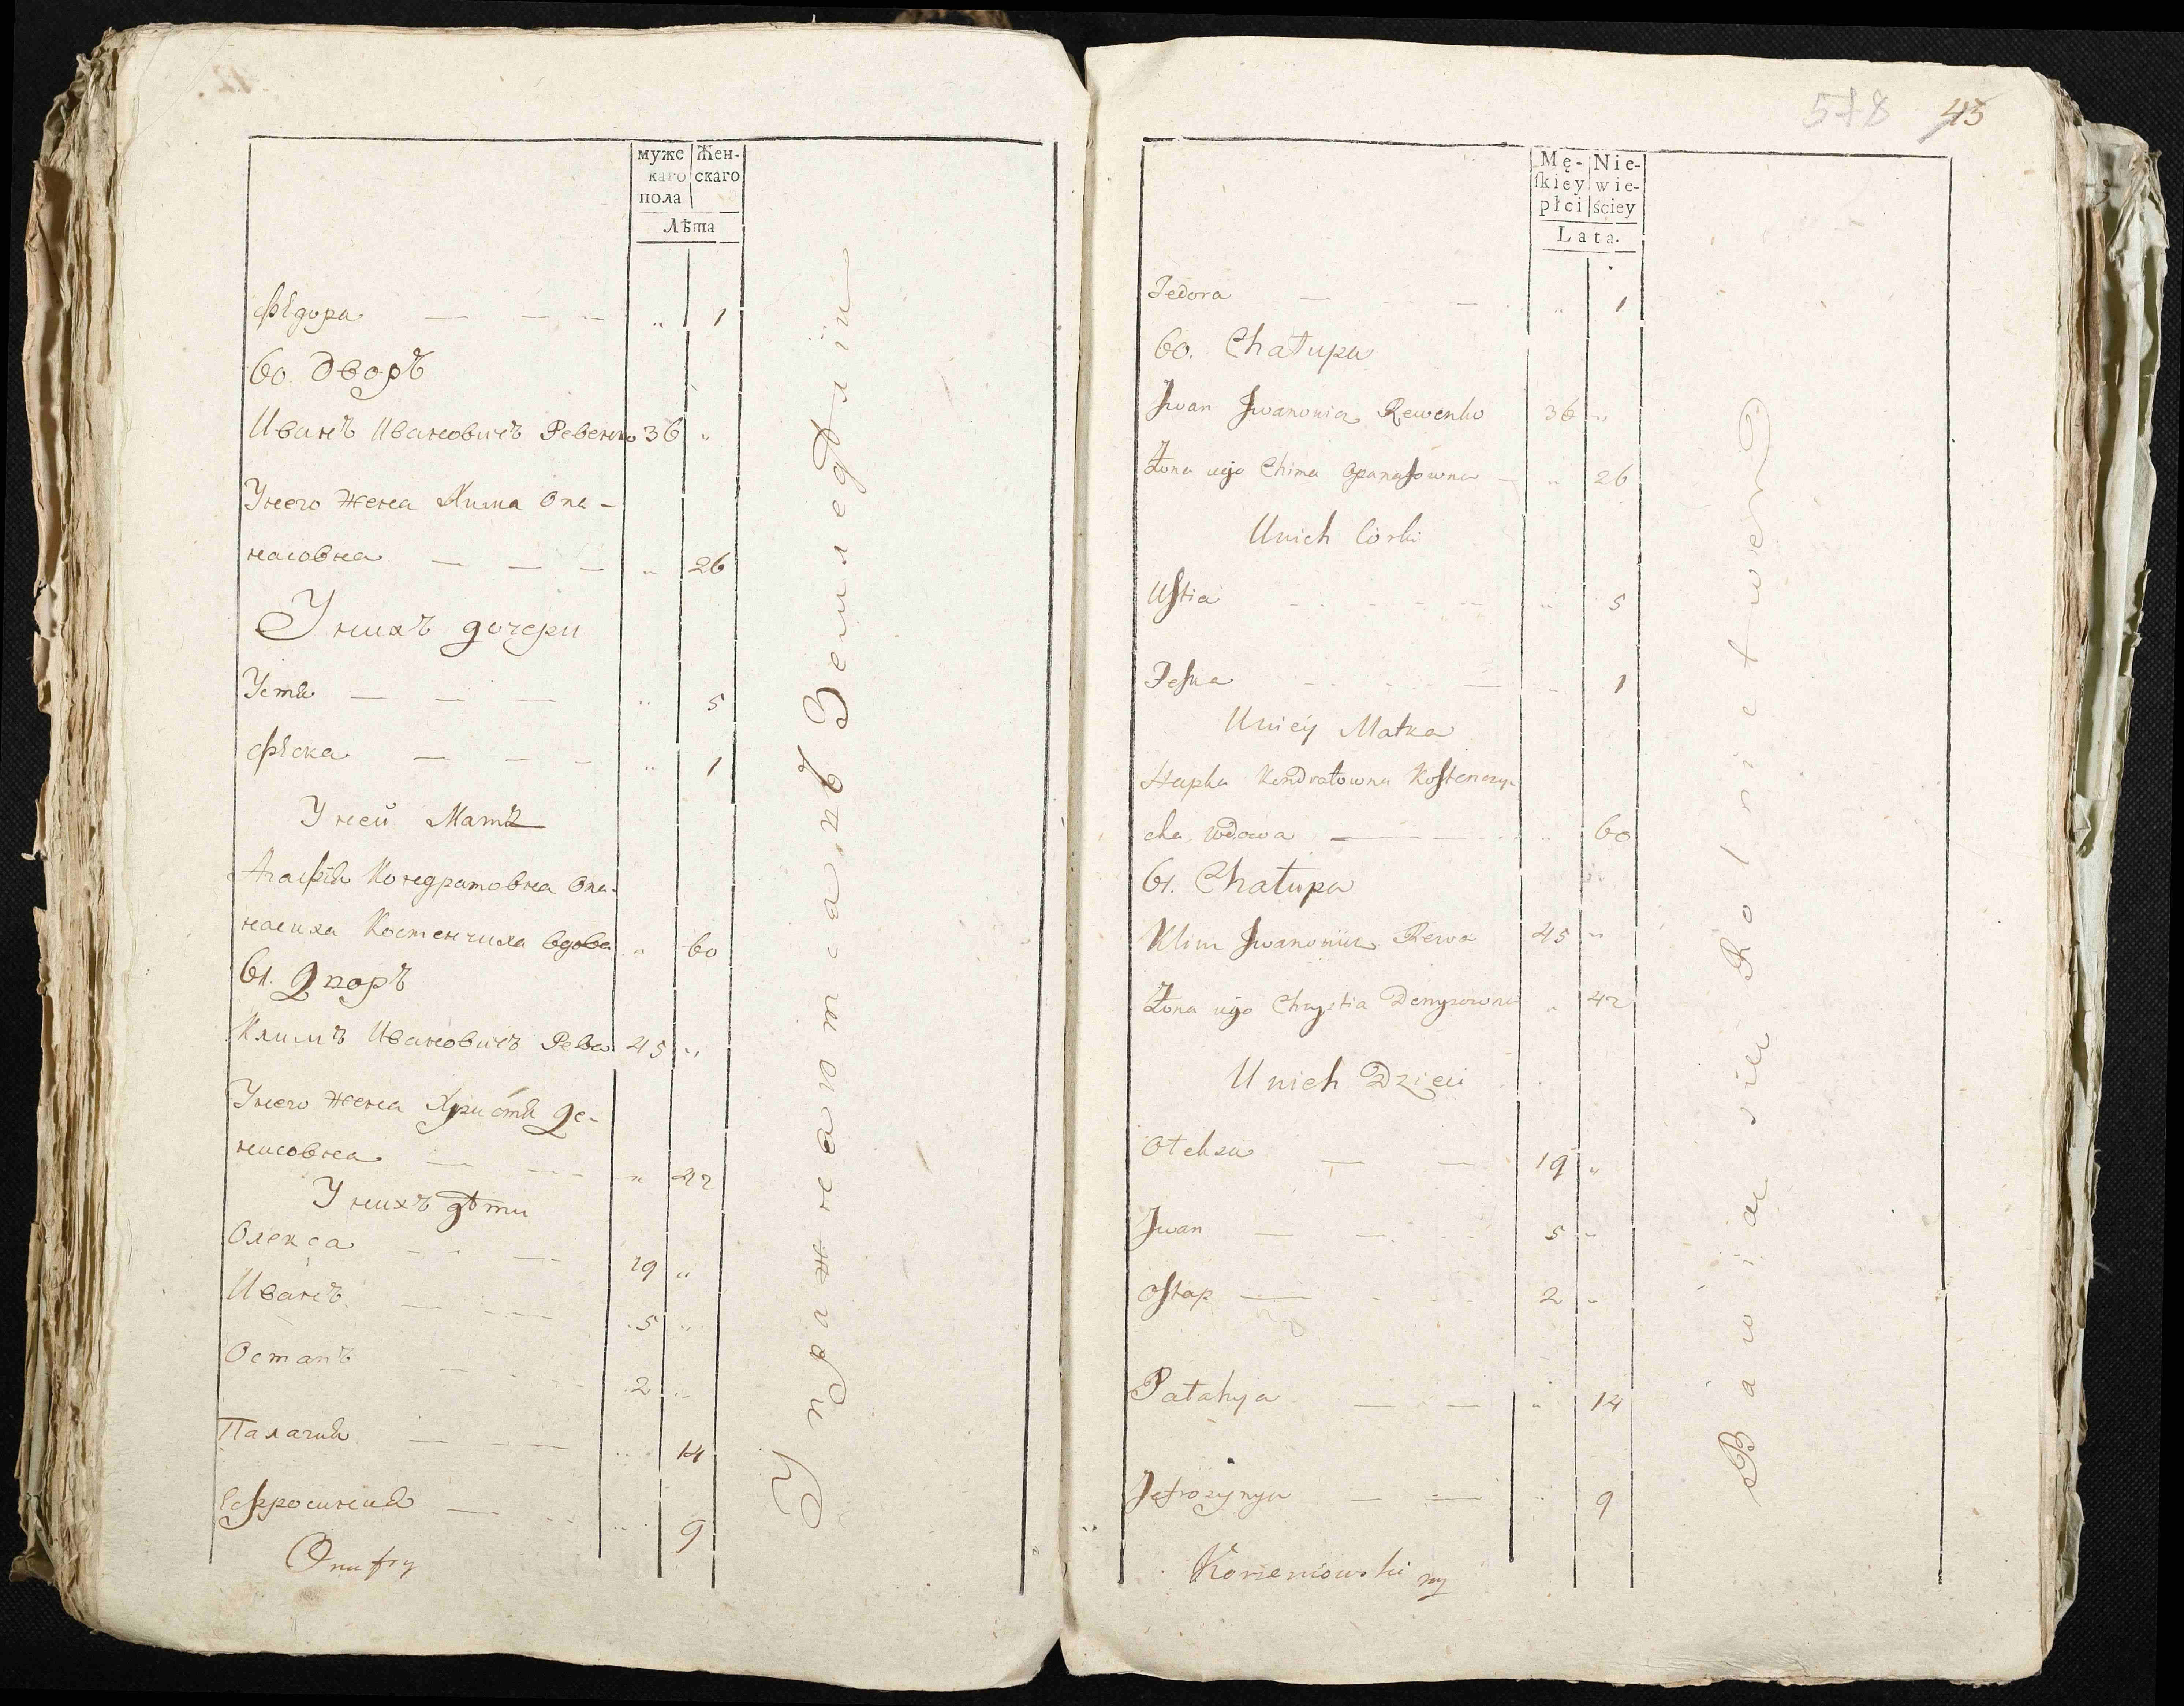 муже Жен-
каго скаго
пола
Лѣта
Ѳедора — — — „ 1
60. Дворъ
Иванъ Ивановичъ Ревенко 36 „
Унего жена Хима Опа-
насовна — — — „ 26
Унихъ дочери
Устя — — — „ 5
Ѳеска — — — „ 1
У ней Мать
Агафія Кондратовна Опа-
насиха Костенчиха вдова „ 60
61. Дворъ
Климъ Ивановичъ Рева 45 „
Унего жена Христя Де-
нисовна — — „ 42
У нихъ дѣти
Олекса — — 19 „
Иванъ — — 5 „
Остапъ — — 2 „
Палагия — — „ 14
Ефросиния — — „ 9
Onufry
Упражнаютса въ Земледѣліи
518 43
Mę- Nie-
ſkiey wie-
płci ściey
Lata.
Fedora — — „ 1
60. Chałupa
Jwan Jwanowicz Rewenko 36 „
Żona iego Chima Opanaſowna — „ 26
Unich Córki
Uſtia — — „ 5
Feſka — — „ 1
Uniéy Matka
Hapka Kondratowna Koſtenczy-
cha wdowa — — „ 60
61. Chałupa
Klim Jwanowicz Rewa 45 „
Żona iego Chrystia Denysowna „ 42
U nich Dzieci
Ołeksa — — 19 „
Jwan — — 5 „
Oſtap — 2 „
Pałahya — — „ 14
Jefrozynya — — „ 9
Korzeniowski
Bawią się Rolnictwem